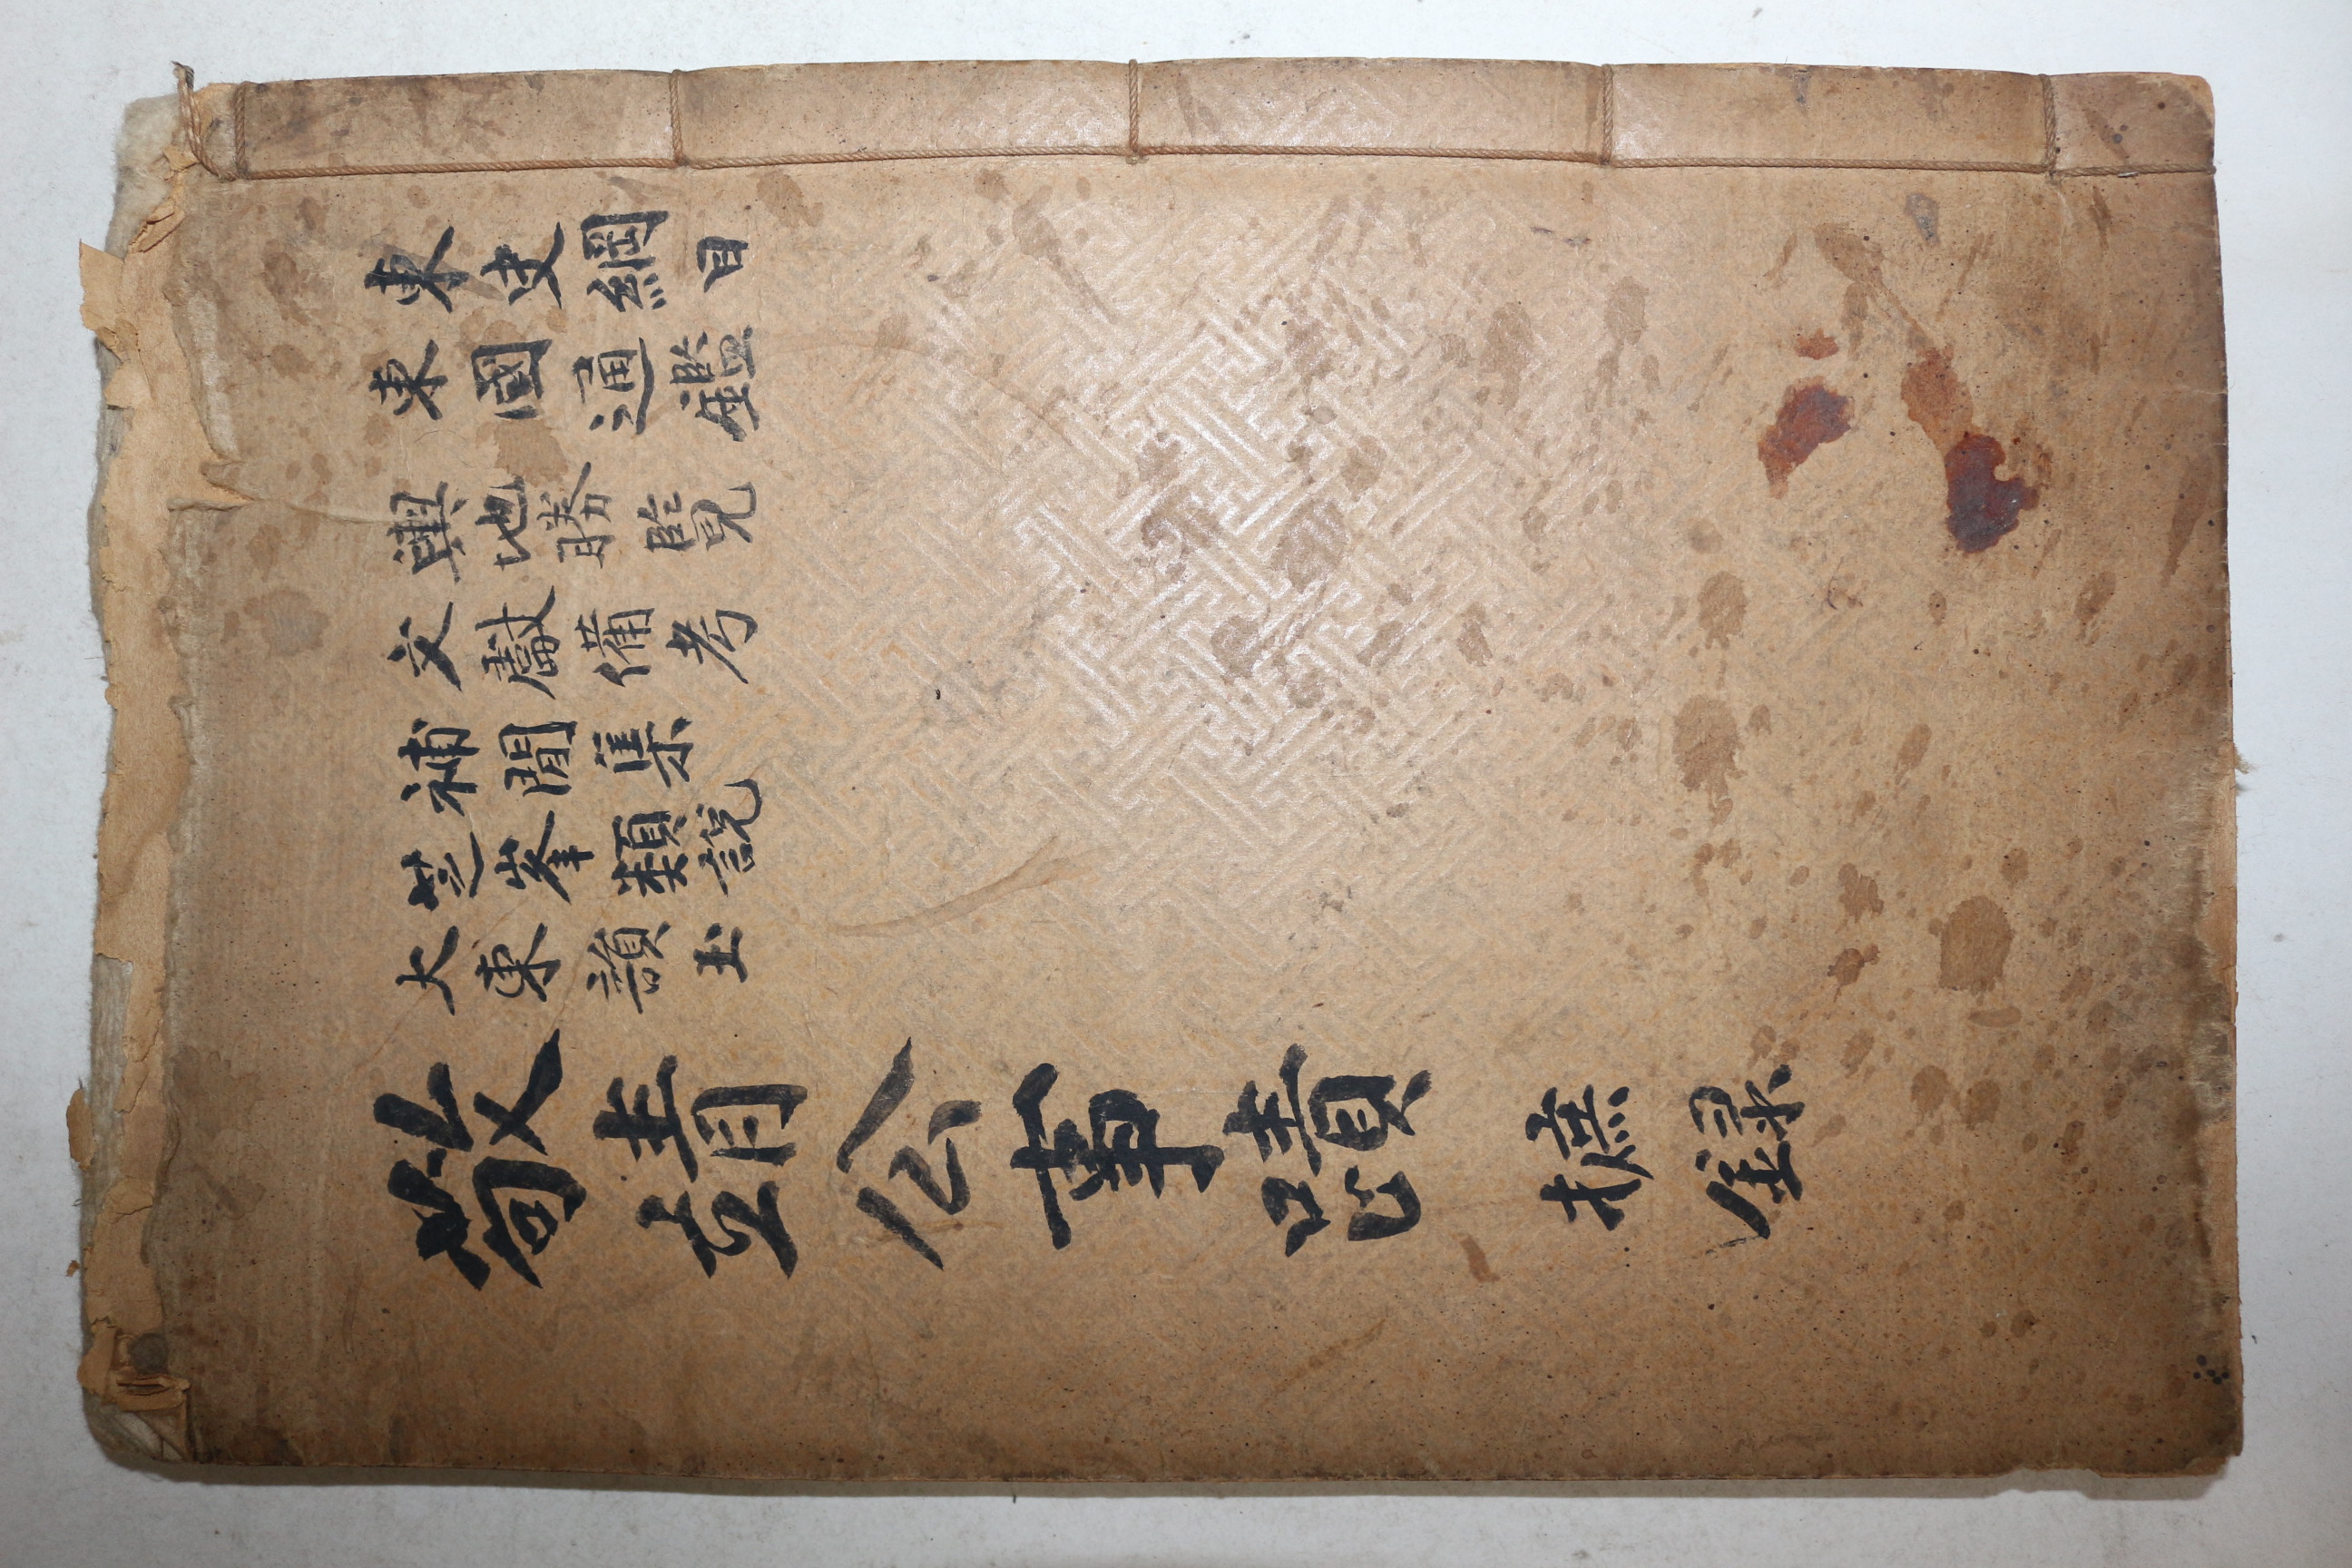 東史綱目
東國通鑑
輿地勝覽
文獻備考
補閒集
芝峯類說
大東韻玉
敬靖公事蹟摭錄